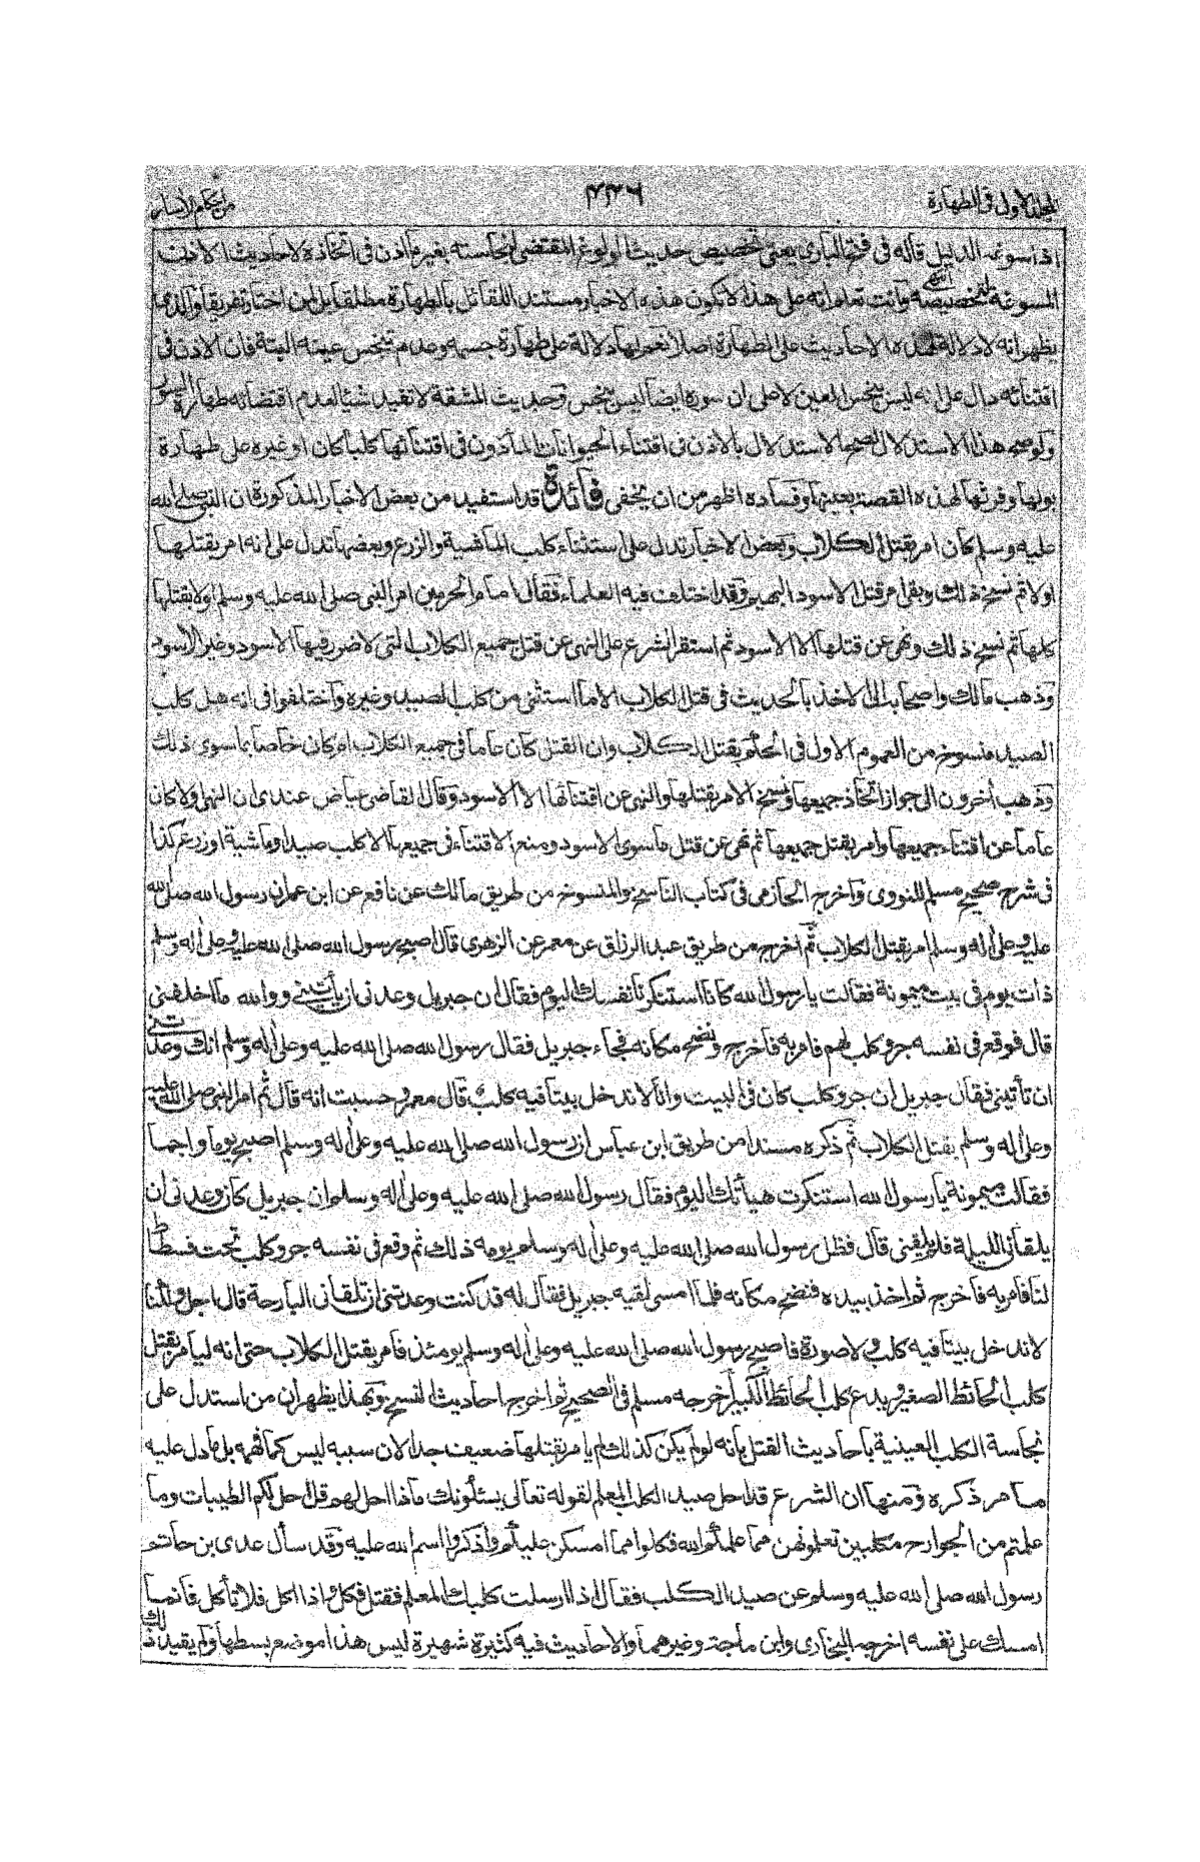 المجلد الاول فى الطهارة ٤٤٦ من احكام الاسار
اذا سوغه الدليل قاله فى فتح البارى يعنى تخصيص حديث الولوغ المقتضى لنجاسته بغير ما اذن فى اتخاذه لاحاديث الاذن
المسوغة لتخصيصه وانت تعلم انه على هذا لا تكون هذه الاخبار مستند اللقائل بالطهارة مطلقا بل لمن اختار تفريقا والذى
يظهر انه لا دلالة لهذه الاحاديث على الطهارة اصلا نعم لها دلالة على طهارة جسمه وعدم تنجس عينه البتة فان الاذن فى
اقتنائه دال على انه ليس بنجس العين لا على ان سوره ايضا ليس بنجس وحديث المشقة لا تفيد شيئا لعدم اقتضائه طهارة السور
ولو صح هذا الاستدلال لصح الاستدلال بالاذن فى اقتناء الحيوانات المأذون فى اقتنائها كلبا كان او غيره على طهارة
بولها وفرثها لهذه القصة بعينها وفساده اظهر من ان يخفى فائدة قد استفيد من بعض الاخبار المذكورة ان النبى صلى الله
عليه وسلم كان امر بقتل الكلاب وبعض الاخبار تدل على استثناء كلب الماشية والزرع وبعضها تدل على انه امر بقتلها
اولا ثم نسخ ذلك وبقى امر قتل الاسود البهيم وقد اختلف فيه العلماء فقال امام الحرمين امر النبى صلى الله عليه وسلم اولا بقتلها
كلها ثم نسخ ذلك ونهى عن قتلها الا الاسود ثم استقر الشرع على النهى عن قتل جميع الكلاب التى لا ضرر فيها الاسود وغير الاسود
وذهب مالك واصحابه الى الاخذ بالحديث فى قتل الكلاب الا ما استثنى من كلب الصيد وغيره واختلفوا فى انه هل كلب
الصيد منسوخ من العموم الاول فى الحكم بقتل الكلاب وان القتل كان عاما فى جميع الكلاب ام كان خاصا بما سوى ذلك
وذهب أخرون الى جواز اتخاذ جميعها ونسخ الامر بقتلها والنهى عن اقتنائها الا الاسود وقال القاضى عياض عندى ان النهى اولا كان
عاما عن اقتناء جميعها وامر بقتل جميعها ثم نهى عن قتل ما سوى الاسود ومنع الاقتناء فى جميعها الا كلب صيد او ماشية او زرع كذا
فى شرح صحيح مسلم للنووى واخرج الحازمى فى كتاب الناسخ والمنسوخ من طريق مالك عن نافع عن ابن عمر ان رسول الله صلى الله
عليه وعلى أله وسلم امر بقتل الكلاب ثم اخرج من طريق عبد الرزاق عن معمر عن الزهرى قال اصبح رسول الله صلى الله عليه وعلى أله وسلم
ذات يوم فى بيت ميمونة فقالت يا رسول الله كانا استنكرنا نفسك اليوم فقال ان جبريل وعدنى ان ياتينى ووالله ما اخلفنى
قال فوقع فى نفسه جرو كلب لهم فامر به فاخرج ونضح مكانه فجاء جبريل فقال رسول الله صلى الله عليه وعلى أله وسلم انك وعدتنى
ان تأتينى فقال جبريل ان جرو كلب كان فى البيت وانا لا ندخل بيتا فيه كلب قال معمر وحسبت انه قال ثم امر النبى صلى الله عليه
وعلى أله وسلم بقتل الكلاب ثم ذكره مسندا من طريق ابن عباس ان رسول الله صلى الله عليه وعلى أله وسلم اصبح يوما واجما
فقالت ميمونة يا رسول الله استنكرت هيأتك اليوم فقال رسول الله صلى الله عليه وعلى أله وسلم ان جبريل كان وعدنى ان
يلقانى الليلة فلم يلقنى قال فظل رسول الله صلى الله عليه وعلى أله وسلم يومه ذلك ثم وقع فى نفسه جرو كلب تحت فسطاط
لنا فامر به فاخرج ثم اخذ بيده فنضح مكانه فلما امسى لقيه جبريل فقال له قد كنت وعدتنى ان تلقانى البارحة قال اجل ولكنا
لا ندخل بيتا فيه كلب ولا صورة فاصبح رسول الله صلى الله عليه وعلى أله وسلم يومئذ فامر بقتل الكلاب حتى انه ليأمر بقتل
كلب الحائط الصغير ويدع كلب الحائط الكبير اخرجه مسلم فى الصحيح ثم اخرج احاديث النسخ وبهذا يظهر ان من استدل على
نجاسة الكلب العينية باحاديث القتل بانه لو لم يكن كذلك لم يامر بقتلها ضعيف جدا لان سببه ليس كما فهمه بل ما دل عليه
ما مر ذكره ومنها ان الشرع قد احل صيد الكلب المعلم لقوله تعالى يسئلونك ماذا احل لهم قل احل لكم الطيبات وما
علمتم من الجوارح مكلبين تعلمونهن مما علمكم الله فكلوا مما امسكن عليكم واذكروا اسم الله عليه وقد سأل عدى بن حاتم
رسول الله صلى الله عليه وسلم عن صيد الكلب فقال اذا ارسلت كلبك المعلم فقتل فكل واذا اكل فلا تأكل فانما
امسك على نفسه اخرجه البخارى وابن ماجة وغيرهما والاحاديث فيه كثيرة شهيرة ليس هذا موضع بسطها ولم يقيد ذلك